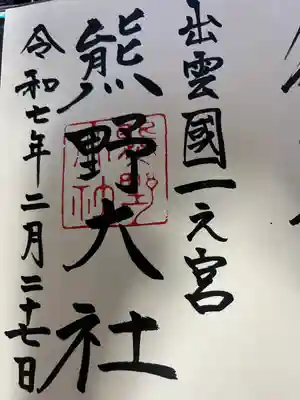 出雲國一之宮
熊野大社
令和七年二月二十七日